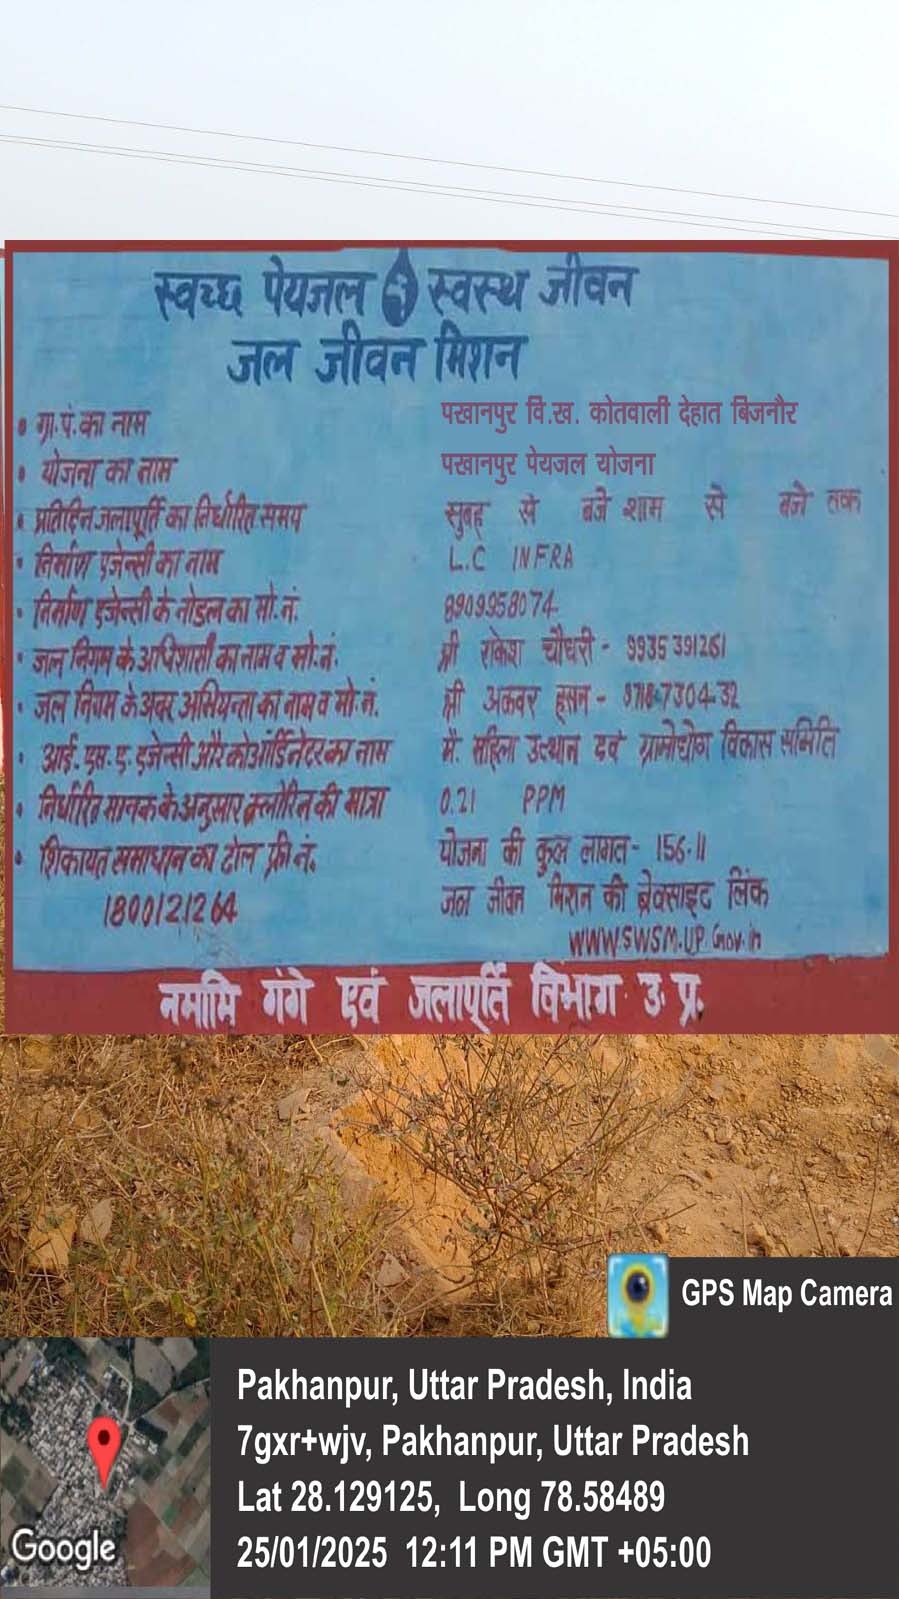 स्वच्छ पेयजल स्वस्थ जीवन
जल जीवन मिशन
ग्रा.पं.का नाम पखानपुर वि.ख. कोतवाली देहात बिजनौर
योजना का नाम पखानपुर पेयजल योजना
प्रतिदिन जलापूर्ति का निर्धारित समय सुबह से बजे शाम से बजे तक
निर्माण एजेन्सी का नाम L.C INFRA
निर्माण एजेन्सी के नोडल का मो.नं. 8909958074
जल निगम के अधिशासी का नाम व मो.नं. श्री राकेश चौधरी - 9935391261
जल निगम के अवर अभियन्ता का नाम व मो.नं. श्री अकबर हसन -
आई.एस.ए.एजेन्सी और कोऑर्डिनेटर का नाम मै. महिला उत्थान एवं ग्रामोद्योग विकास समिति
निर्धारित मानक के अनुसार क्लोरिन की मात्रा 0.21 PPM
शिकायत समाधान का टोल फ्री नं. योजना की कुल लागत - 156.11
1800121264 जल जीवन मिशन की वेबसाइट लिंक
WWW.SWSM.UP.Gov.in
नमामि गंगे एवं जलापूर्ति विभाग उ.प्र.
GPS Map Camera
Pakhanpur, Uttar Pradesh, India
7gxr+wjv, Pakhanpur, Uttar Pradesh
Lat 28.129125, Long 78.58489
25/01/2025 12:11 PM GMT +05:00
Google